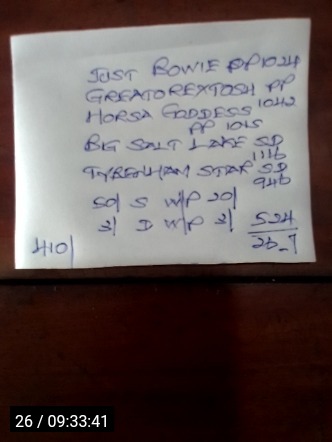 JUST BOWIE PP 1024
GREATOREXTOSH PP
1042
HORSA GODDESS
PP 1015
BIG SALT LAKE SD
1116
TYRENHAM STAR SD
946
50/ S W/P 20/
3/ D W/P 3/
524
410/
26-7
26 / 09:33:41